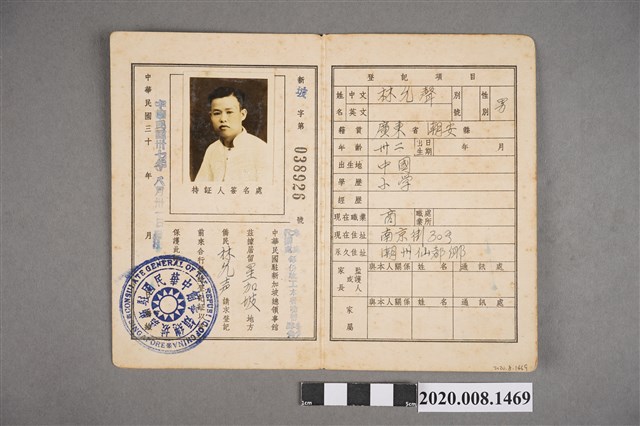 新
坡
字第
038926
號
中華民國三十 年 月
持証人署名處
中華民國駐新加坡總領事館
茲據居留星加坡地方
僑民林允声請求登記
前來合行
保護此
CONSULATE GENERAL OF THE REPUBLIC OF CHINA
SINGAPORE
登記項目
姓名 中文 林允聲 別號 性別 男
英文
籍貫 廣東省潮安縣
年齡 卅二 出生日期 年 月
出生地 中國
學歷 小学
經歷
現在職業 商 職業處所
現在住址 南京街30号
永久住址 潮州仙都鄉
家長或監護人 與本人關係 姓名 通訊處
家屬 與本人關係 姓名 通訊處
2020.8.1469
1cm
5cm
2020.008.1469